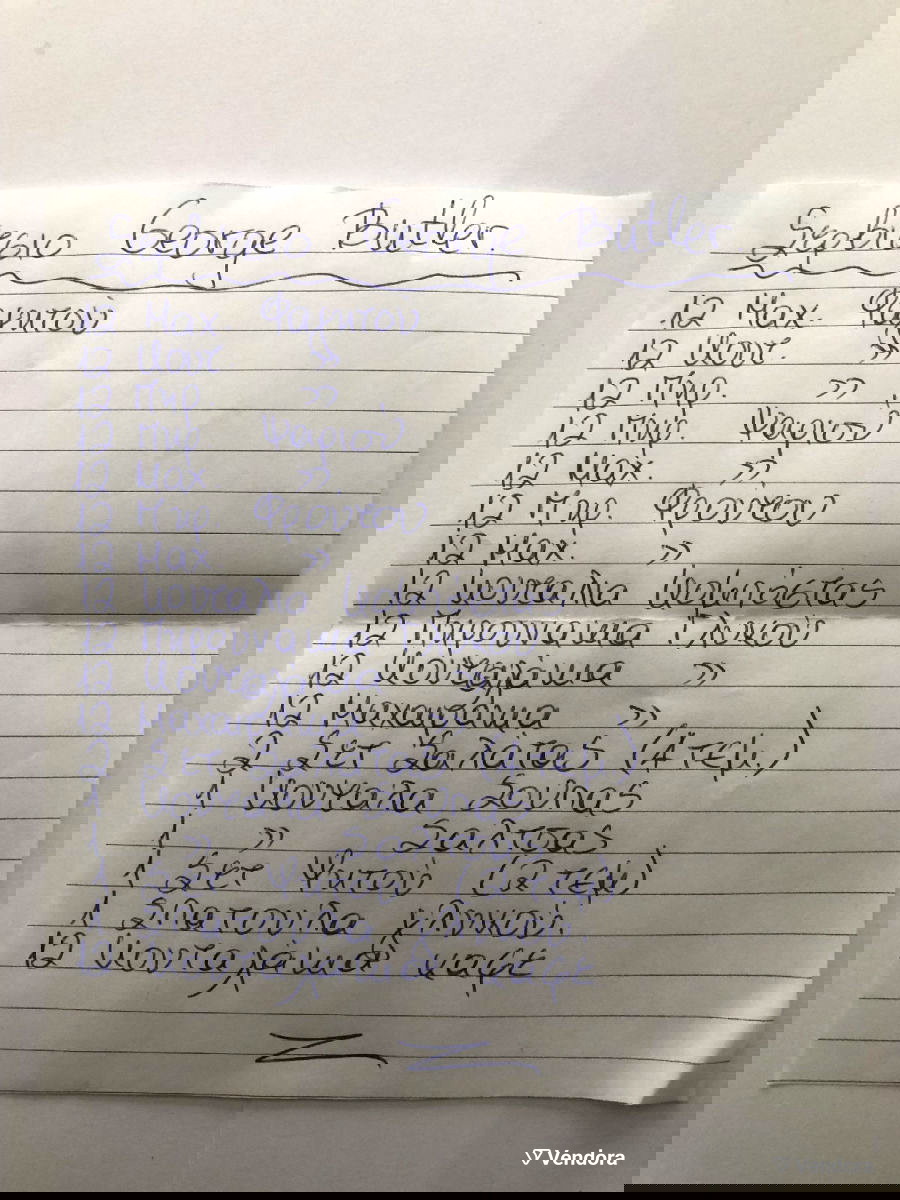 Σερβίτσιο George Butler
12 Μαχ. Φαγητού
12 Κουτ. »
12 Πηρ. »
12 Πηρ. Ψαριού
12 Μαχ. »
12 Πηρ. Φρούτου
12 Μαχ. »
12 Κουταλα Κομπόστας
12 Πηρουνακια Γλυκού
12 Κουταλάκια »
12 Μαχαιράκια »
2 Σετ Σαλάτας (4 τεμ.)
1 Κουταλα Σούπας
1 » Σάλτσας
1 Σετ Ψητού (2 τεμ)
1 Σπάτουλα γλυκού
12 Κουταλάκια καφέ
Vendora